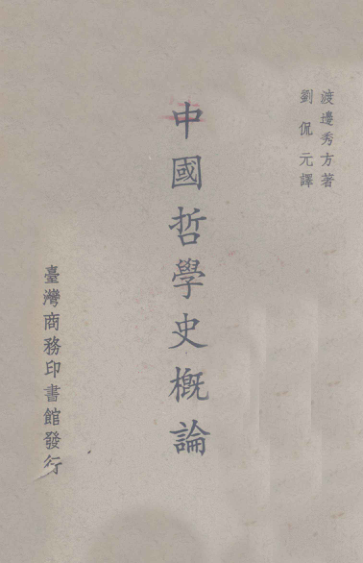 渡邊秀方著
劉侃元譯
中國哲學史概論
臺灣商務印書館發行